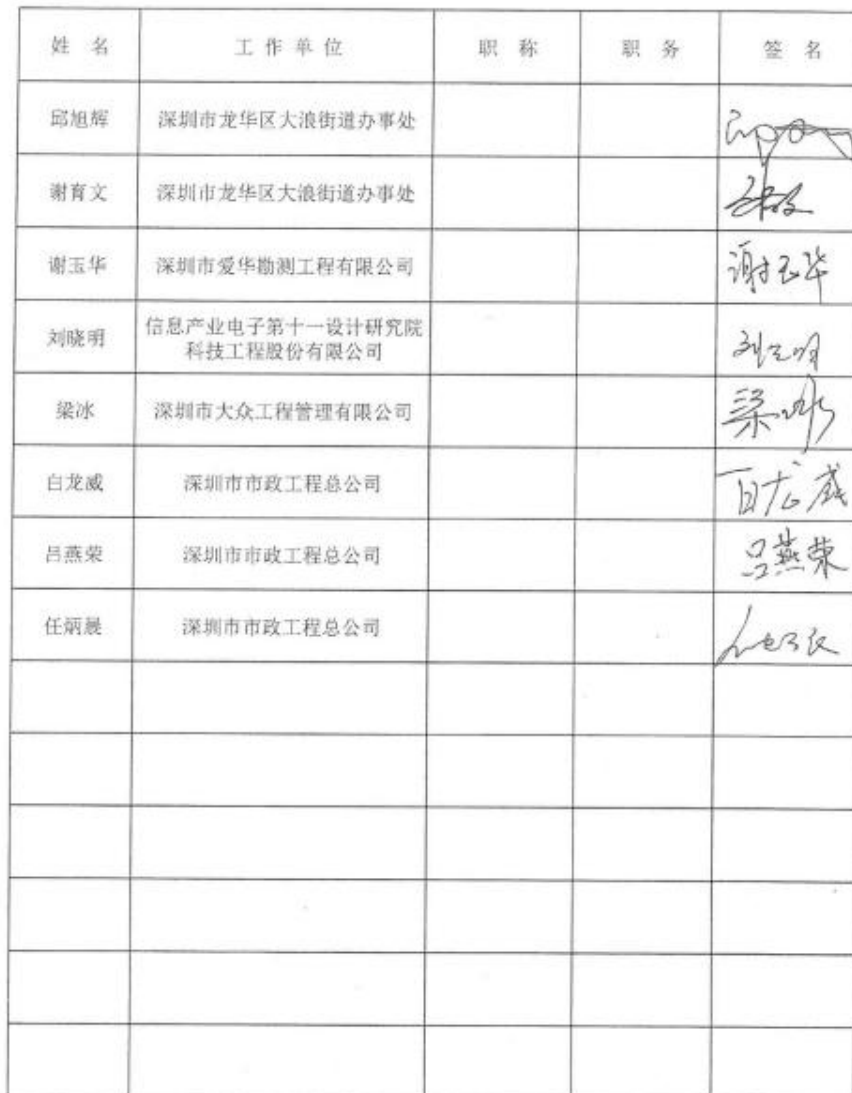 姓 名 工 作 单 位 职 称 职 务 签 名
邱旭辉 深圳市龙华区大浪街道办事处
谢育文 深圳市龙华区大浪街道办事处
谢玉华 深圳市爱华勘测工程有限公司 谢玉华
刘晓明 信息产业电子第十一设计研究院
科技工程股份有限公司 刘晓明
梁冰 深圳市大众工程管理有限公司 梁冰
白龙威 深圳市市政工程总公司 白龙威
吕燕荣 深圳市市政工程总公司 吕燕荣
任炳晨 深圳市市政工程总公司